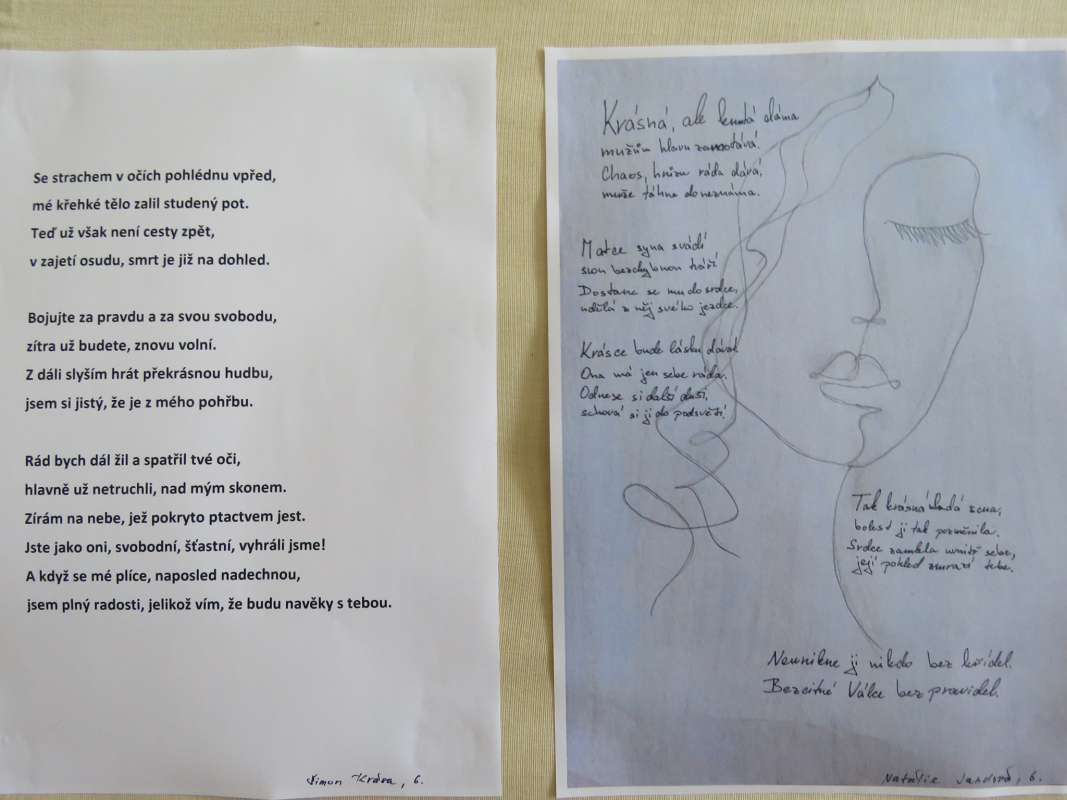 Se strachem v očích pohlédnu vpřed,
mé křehké tělo zalil studený pot.
Teď už však není cesty zpět,
v zajetí osudu, smrt je již na dohled.
Bojujte za pravdu a za svou svobodu,
zítra už budete, znovu volní.
Z dáli slyším hrát překrásnou hudbu,
jsem si jistý, že je z mého pohřbu.
Rád bych dál žil a spatřil tvé oči,
hlavně už netruchli, nad mým skonem.
Zírám na nebe, jež pokryto ptactvem jest.
Jste jako oni, svobodní, šťastní, vyhráli jsme!
A když se mé plíce, naposled nadechnou,
jsem plný radosti, jelikož vím, že budu navěky s tebou.
Šimon Krása, 6.
Krásná, ale krutá dáma
mužům hlavu zamotává.
Chaos, hrůzu ráda dává,
muže táhne do neznáma.
Matce syna svádí
svou bezchybnou tváří
Dostane se mu do srdce,
udělá z něj svého jezdce.
Krásce bude lásku dávat
Ona má jen sebe ráda.
Odnese si další duši,
schová si ji do podsvětí.
Tak krásná mladá žena,
bolest ji tak pozměnila.
Srdce zamkla uvnitř sebe,
její pohled zmrazí tebe.
Neunikne jí nikdo bez křídel.
Bezcitné Válce bez pravidel.
Natálie Jandová, 6.